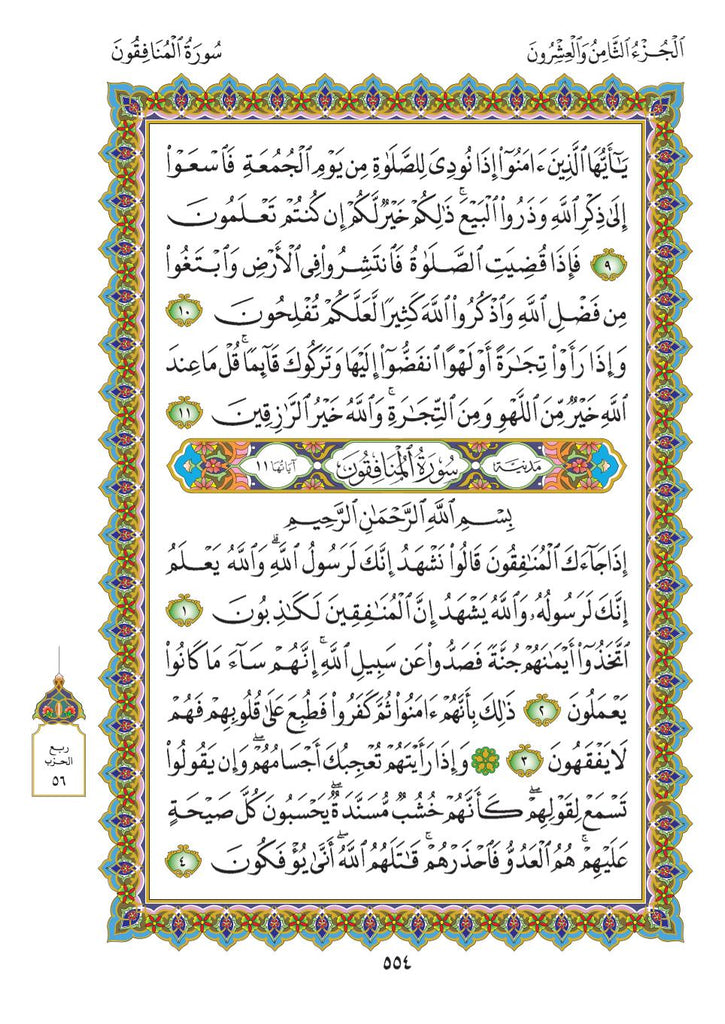 الجُزْءُ الثَّامِنُ وَالعِشْرُونَ
سُورَةُ المُنَافِقُونَ
يَٰٓأَيُّهَا ٱلَّذِينَ ءَامَنُوٓاْ إِذَا نُودِىَ لِلصَّلَوٰةِ مِن يَوْمِ ٱلْجُمُعَةِ فَٱسْعَوْاْ
إِلَىٰ ذِكْرِ ٱللَّهِ وَذَرُواْ ٱلْبَيْعَ ۚ ذَٰلِكُمْ خَيْرٌ لَّكُمْ إِن كُنتُمْ تَعْلَمُونَ
٩ فَإِذَا قُضِيَتِ ٱلصَّلَوٰةُ فَٱنتَشِرُواْ فِى ٱلْأَرْضِ وَٱبْتَغُواْ
مِن فَضْلِ ٱللَّهِ وَٱذْكُرُواْ ٱللَّهَ كَثِيرًا لَّعَلَّكُمْ تُفْلِحُونَ ١٠
وَإِذَا رَأَوْاْ تِجَٰرَةً أَوْ لَهْوًا ٱنفَضُّوٓاْ إِلَيْهَا وَتَرَكُوكَ قَآئِمًا ۚ قُلْ مَا عِندَ
ٱللَّهِ خَيْرٌ مِّنَ ٱللَّهْوِ وَمِنَ ٱلتِّجَٰرَةِ ۚ وَٱللَّهُ خَيْرُ ٱلرَّٰزِقِينَ ١١
مَدَنِيَّة سُورَةُ المُنَافِقُونَ آيَاتُهَا ١١
بِسْمِ ٱللَّهِ ٱلرَّحْمَٰنِ ٱلرَّحِيمِ
إِذَا جَآءَكَ ٱلْمُنَٰفِقُونَ قَالُواْ نَشْهَدُ إِنَّكَ لَرَسُولُ ٱللَّهِ ۗ وَٱللَّهُ يَعْلَمُ
إِنَّكَ لَرَسُولُهُۥ وَٱللَّهُ يَشْهَدُ إِنَّ ٱلْمُنَٰفِقِينَ لَكَٰذِبُونَ ١
ٱتَّخَذُوٓاْ أَيْمَٰنَهُمْ جُنَّةً فَصَدُّواْ عَن سَبِيلِ ٱللَّهِ ۚ إِنَّهُمْ سَآءَ مَا كَانُواْ
يَعْمَلُونَ ٢ ذَٰلِكَ بِأَنَّهُمْ ءَامَنُواْ ثُمَّ كَفَرُواْ فَطُبِعَ عَلَىٰ قُلُوبِهِمْ فَهُمْ
لَا يَفْقَهُونَ ٣ ۞ وَإِذَا رَأَيْتَهُمْ تُعْجِبُكَ أَجْسَامُهُمْ ۖ وَإِن يَقُولُواْ
تَسْمَعْ لِقَوْلِهِمْ ۖ كَأَنَّهُمْ خُشُبٌ مُّسَنَّدَةٌ ۖ يَحْسَبُونَ كُلَّ صَيْحَةٍ
عَلَيْهِمْ ۚ هُمُ ٱلْعَدُوُّ فَٱحْذَرْهُمْ ۚ قَٰتَلَهُمُ ٱللَّهُ ۖ أَنَّىٰ يُؤْفَكُونَ ٤
ربع
الحزب
٥٦
٥٥٤